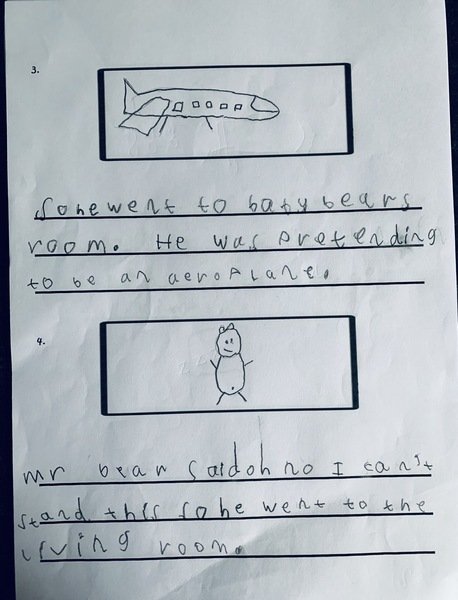 3.
So he went to baby bears
room. He was pretending
to be an aeroplane.
4.
mr bear said oh no I can't
stand this so he went to the
living room.